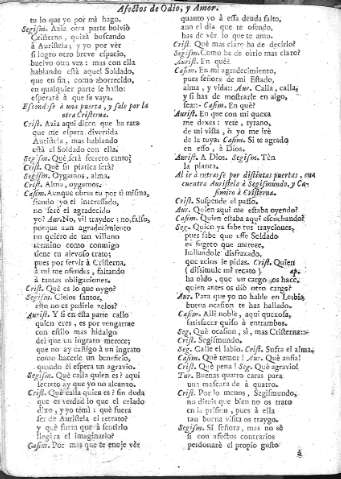 Afectos de Odio, y Amor.
tu lo que yo por mì hago.
Segism. Azia otra parte bolviò
Cristerna, quizà buscando
à Auristela; y yo por vèr
si logro otro breve espacio,
buelvo otra vez: mas con ella
hablando està aquel Soldado,
que en fin, como aborrecido,
en qualquier parte le hallo:
esperarè à que se vaya.
Escondese à una puerta, y sale por la
otra Cristerna.
Crist. Azia aqui dicen que ha rato
que me espera divertida
Auristela, mas hablando
està el Soldado con ella.
Segism. Què serà secreto tanto?
Crist. Què su platica serà?
Segism. Oygamos, alma.
Crist. Alma, oygamos.
Casim. Aunque ahora no por sì misma,
siendo yo el interesado,
no serè el agradecido
yo? Aurist. No, vil traydor; no, falso,
porque tan agradecimiento
no quiero de tan villano
termino como conmigo
tiene tu alevoso trato;
pues por servir à Cristerna,
à mì me ofendes, faltando
à tantas obligaciones.
Crist. Què es lo que oygo?
Segism. Cielos santos,
esto no es pedirle zelos?
Aurist. Y si en esta parte callo
quien eres, es por vengarme
con estilo mas hidalgo
del que un ingrato merece;
que no ay castigo à un ingrato
como hacerle un beneficio,
quando èl espera un agravio.
Segism. Què calla quien es? aqui
secreto ay que yo no alcanzo.
Crist. Què calla quien es? sin duda
que es verdad lo que el criado
dixo, y yo temì: què fuera
ser de Auristela el retrato?
y què fuera que à sentirlo
llegàra el imaginarlo?
Casim. Por mas que te enoje vèr
quanto yo à essa deuda falto,
aun el dia que te ofendo,
has de vèr lo que te amo.
Crist. Què mas claro ha de decirlo?
Segism. Como he de oirlo mas claro?
Aurist. En què?
Casim. En mi agradecimiento,
pues señora de mi Estado,
alma, y vida: Aur. Calla, calla,
y si has de mostrarle en algo,
sea: Casim. En què?
Aurist. En que con mi quexa
me dexes: vete, tyrano,
de mi vista, ò yo me irè
de la tuya. Casim. Si te agrado
en esso, à Dios.
Aurist. A Dios. Segism. Tèn
la planta.
Al ir à entrarse por distintas puertas, encuentra Auristela à Segismundo, y Casimiro à Cristerna.
Crist. Suspende el passo.
Aur. Quien aqui me estaba oyendo?
Casim. Quien estaba aqui escuchando?
Seg. Quien ya sabe tus trayciones,
pues sabe que esse Soldado
es sugeto que merece,
hallandole disfrazado,
que zelos le pidas. Crist. Quien
(dissimule mi recato) ap.
ha oido, que un cargo os hace,
quien antes os diò otro cargo?
Aur. Para que yo no hable en Loble,
buena ocasion te has hallado.
Casim. Allì noble, aqui quexosa,
satisfacer quiso à entrambos.
Seg. Què ocasion, si, mas Cristerna:-
Crist. Segismundo.
Seg. Calle el labio. Crist. Sufra el alma,
Casim. Què temor! Aur. Què ansia!
Crist. Què pena! Seg. Què agravio!
Tur. Buenas quatro caras para
una mascara de à quatro.
Crist. Por lo menos, Segismundo,
no direis que bien no os trato
en la prision, pues à ella
tan buena visita os traygo.
Segism. Si señora, mas no sè
si con afectos contrarios
perdonarè el propio gusto
à